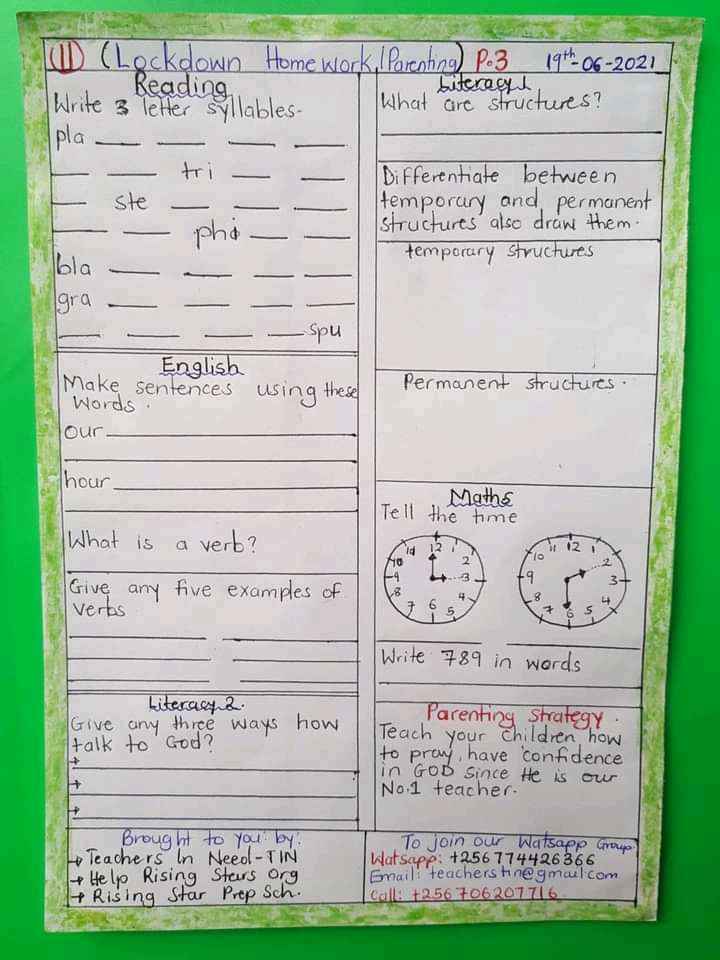 (11) (Lockdown Home work, (Parenting) P.3 19th-06-2021
Reading
Write 3 letter syllables-
pla
tri
ste
pho
bla
gra
spu
English
Make sentences using these
words.
our
hour
What is a verb?
Give any five examples of
verbs
Literacy 2.
Give any three ways how
talk to God?
Literacy 1
What are structures?
Differentiate between
temporary and permanent
structures also draw them.
temporary structures
Permanent structures.
Maths
Tell the time
12 1 2 3 4 5 6 7 8 9 10 11
12 1 2 3 4 5 6 7 8 9 10 11
Write 789 in words
Parenting Strategy.
Teach your children how
to pray, have confidence
in GOD since He is our
No.1 teacher.
Brought to you by:
→ Teachers In Need-TIN
→ Help Rising Stars Org
→ Rising Star Prep Sch.
To join our Watsapp Group
Watsapp: +256774426366
Email: teacherstin@gmail.com
Call: +256706207716